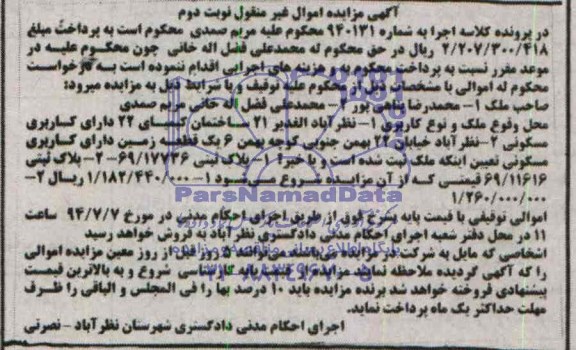 آگهی مزایده اموال غیر منقول نوبت دوم
در پرونده کلاسه اجرا به شماره ۹۴۰۱۳۱ محکوم علیه مریم صمدی محکوم است به پرداخت مبلغ
۲/۲۰۷/۳۰۰/۴۱۸ ریال در حق محکوم له محمدعلی فضل اله خانی چون محکوم علیه در
موعد مقرر نسبت به پرداخت محکوم به و هزینه های اجرایی اقدام ننموده است به درخواست
محکوم له اموالی با مشخصات ذیل از محکوم علیه توقیف و با شرایط ذیل به مزایده میرود:
صاحب ملک ۱- محمدرضا پور ۲- محمدعلی فضل اله خانی مریم صمدی
محل وقوع ملک و نوع کاربری ۱- نظرآباد الغدیر ۲۱ ساختمان کیمیای ۲۲ دارای کاربری
مسکونی ۲- نظرآباد خیابان ۲۲ بهمن جنوبی کوچه بهمن ۶ یک قطعه زمین دارای کاربری
مسکونی تعیین اینکه ملک ثبت شده است و یا خیر؟ ۱- پلاک ثبتی ۶۹/۱۷۷۳۶ ۲- پلاک ثبتی
۶۹/۱۱۶۱۶ قیمتی که از آن مزایده شروع می شود ۱- ۱/۱۸۲/۴۴۰/۰۰۰ ریال ۲-
۱/۲۶۰/۰۰۰/۰۰۰
ParsNamadData
اموالی توقیفی با قیمت پایه بشرح فوق از طریق اجرای احکام مدنی در مورخ ۹۴/۷/۷ ساعت
۱۱ در محل دفتر شعبه اجرای احکام مدنی دادگستری نظرآباد به فروش خواهد رسید
اشخاصی که مایل به شرکت در مزایده می‌باشند می‌توانند ۵ روز قبل از روز معین مزایده اموالی
را که آگهی گردیده ملاحظه نمایند مزایده از قیمت پایه کارشناسی شروع و به بالاترین قیمت
پیشنهادی فروخته خواهد شد برنده مزایده باید ۱۰ درصد بها را فی المجلس و الباقی را ظرف
مهلت حداکثر یک ماه پرداخت نماید.
اجرای احکام مدنی دادگستری شهرستان نظرآباد - نصرتی